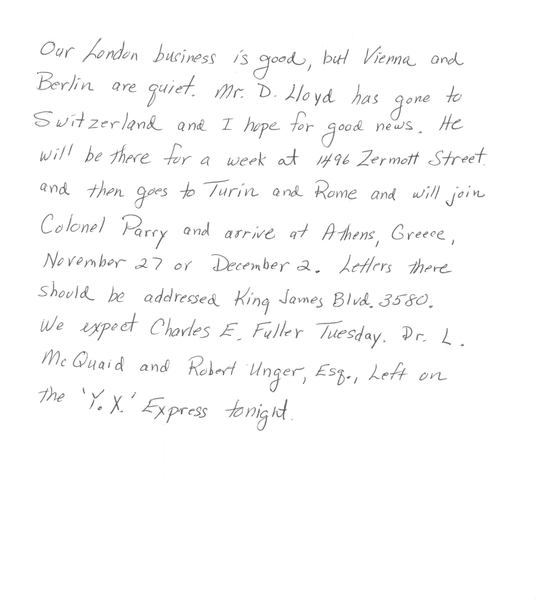 Our London business is good, but Vienna and
Berlin are quiet. Mr. D. Lloyd has gone to
Switzerland and I hope for good news. He
will be there for a week at 1496 Zermott Street
and then goes to Turin and Rome and will join
Colonel Parry and arrive at Athens, Greece,
November 27 or December 2. Letters there
should be addressed King James Blvd. 3580.
We expect Charles E. Fuller Tuesday. Dr. L.
McQuaid and Robert Unger, Esq., Left on
the 'Y. X.' Express tonight.